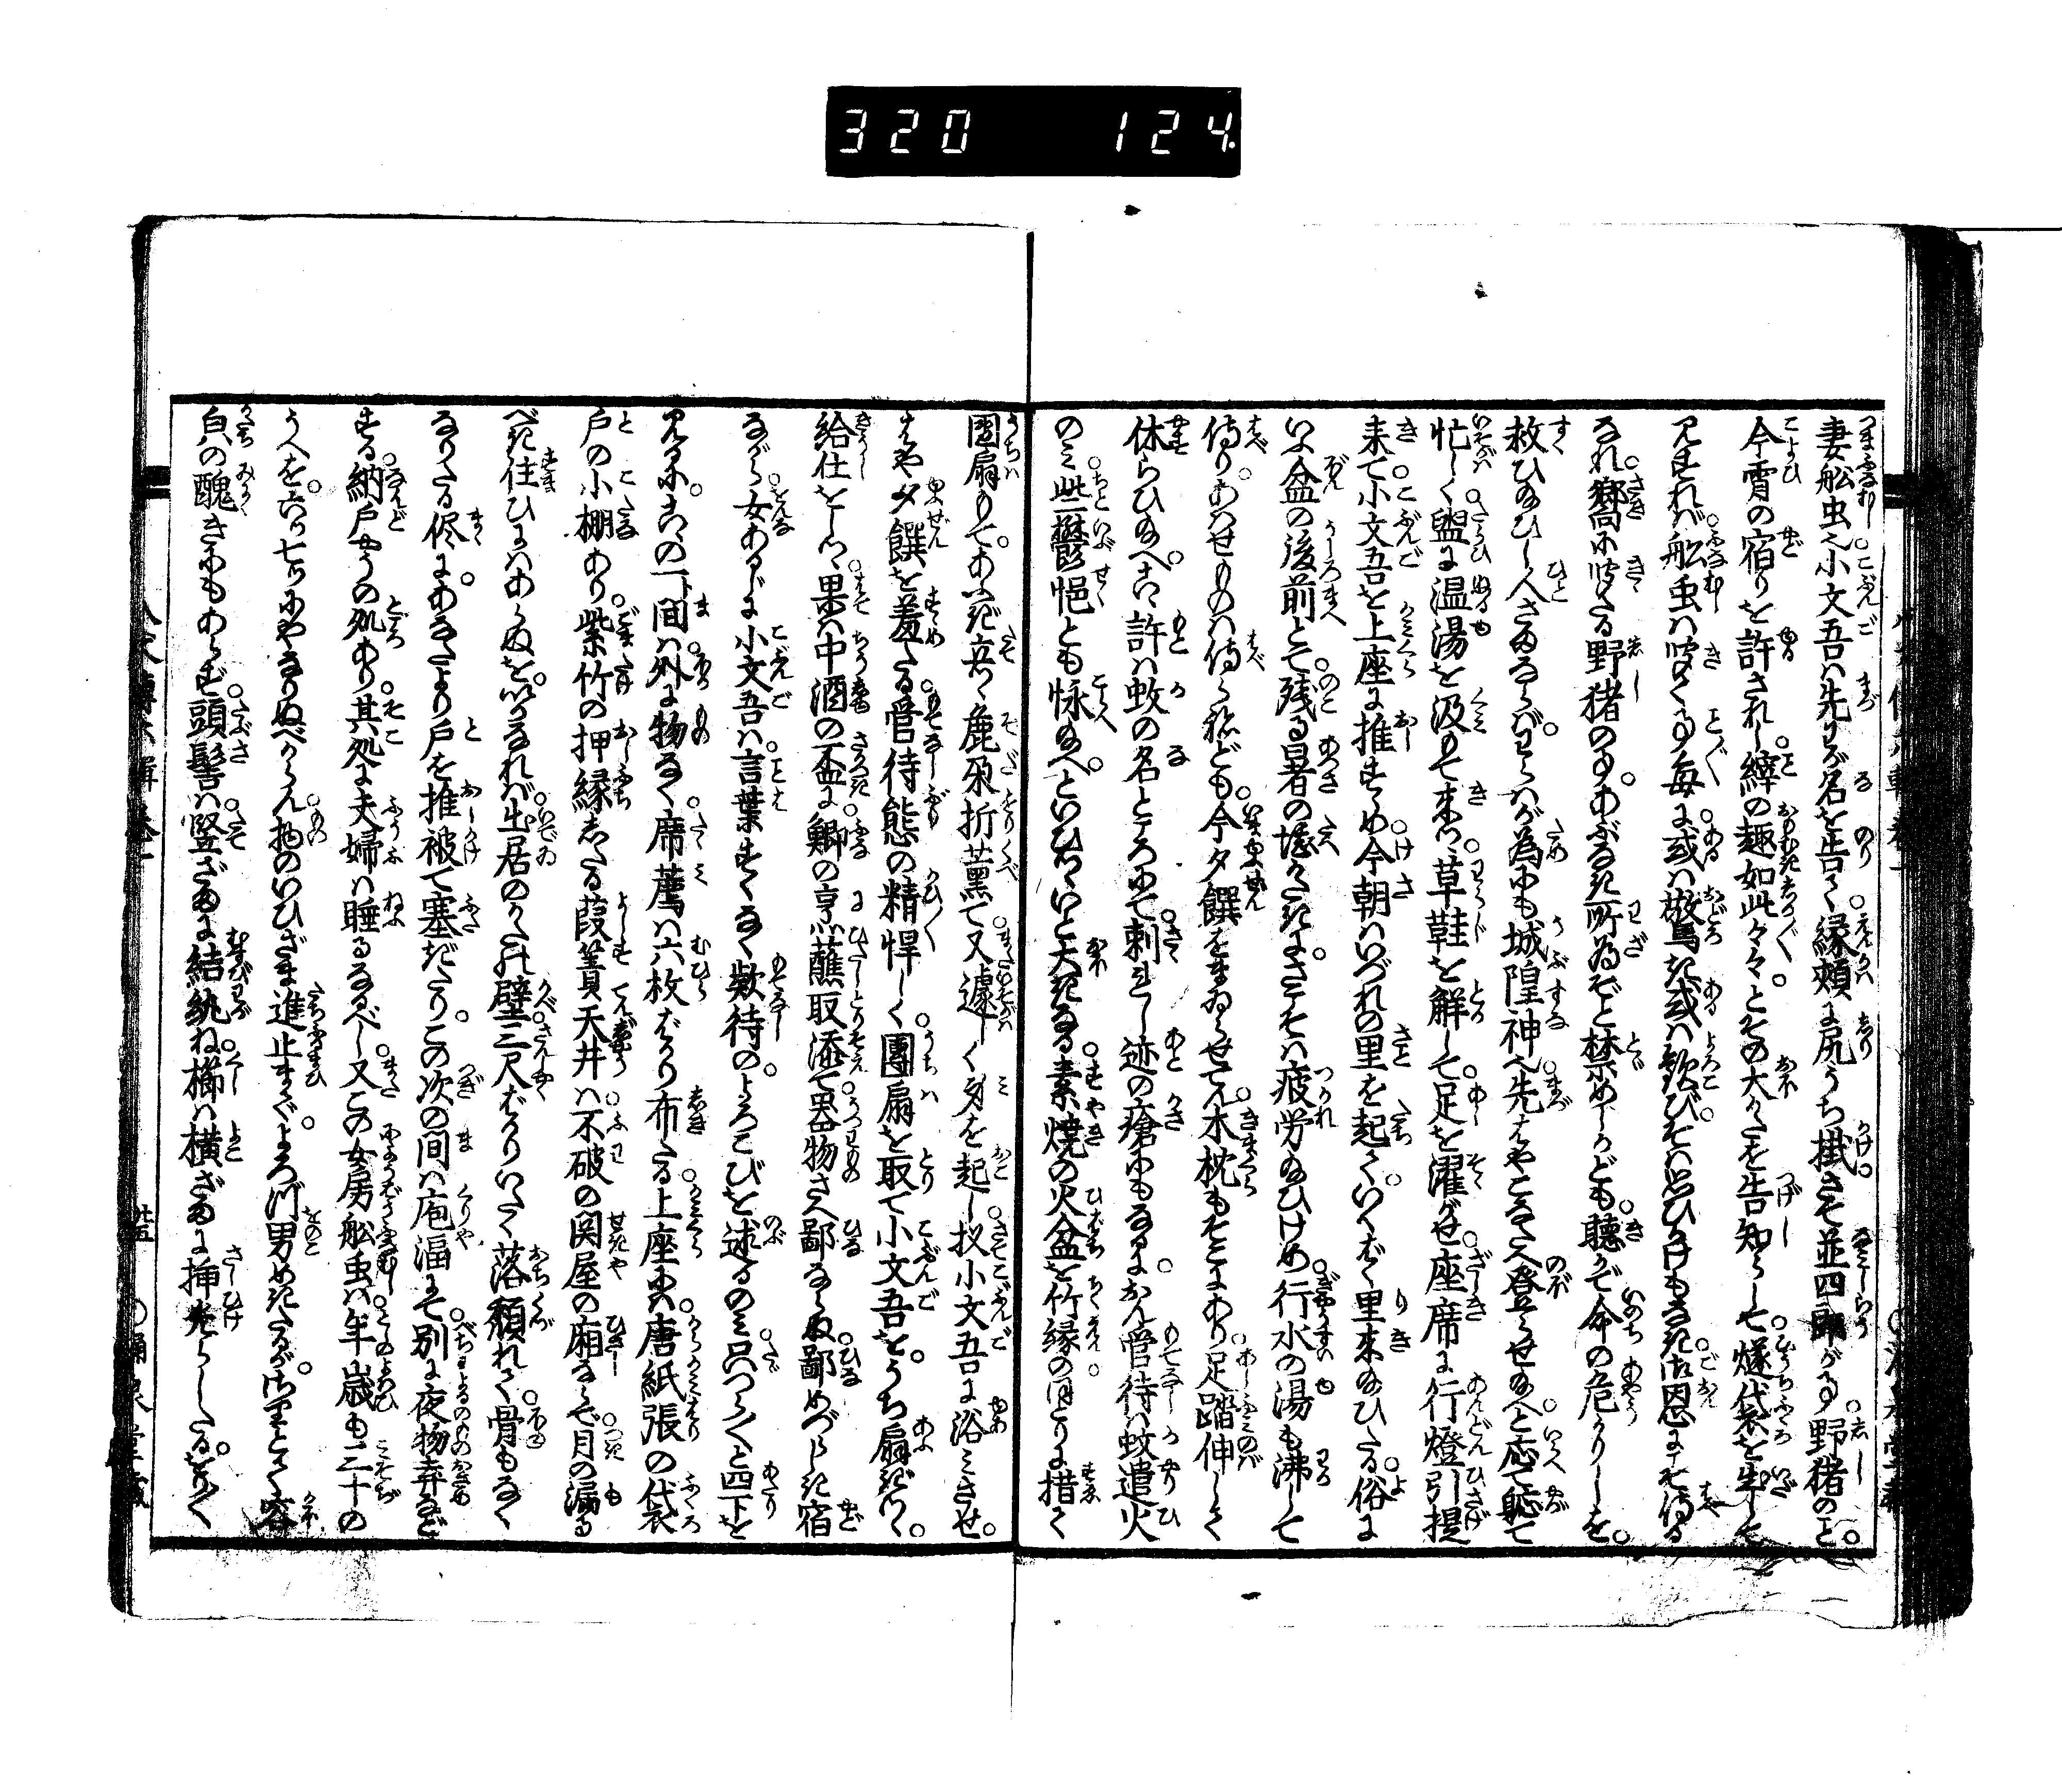 320 124
妻舩虫に小文吾は先わが名を告て縁頬に尻うち掛さて並四郎が事野猪のこと。
今霄の宿りを許されし縡の趣如此々々とその大かたを告知らして燧代袋を出して
見すれば舩虫は聞く事毎に或は驚き或は歓びそは思ひがけもなき御恩にこそ侍る
なれ。嚮に聞たる野猪の事。あぶなき所為ぞと禁めしかども。聴かで命の危かりしを。
救ひ給ひし人さまならば。わらはが為にも城隍神へ先はやこなたへ登らせ給へと応て軈て
忙しく盥に温湯を汲もて来つ。草鞋を解して。足を濯がせ座席に行燈引提
来て。小文吾を上座に推すゝめ今朝はいづれの里を起て。いくばく里来給ひたる。俗に
いふ盆の後前とて残る暑の堪がたきに。さこそは疲労給ひけめ行水の湯も沸して
侍り。あはせものは侍らねども。今夕饌をまゐらせてん木枕もそこにあり足踏伸して
休らひ給へこゝ許は蚊の名ところにて。刺れし迹の瘡にもなるに。おん管待は蚊遣火
のミ。些欝悒とも怺給へ。といひつゝいと大きなる。素焼の火盆を竹縁のほとりに措て
團扇もて。あふぎ立つゝ麁朶折薫て又遽しく身を起し扠小文吾に浴ミさせ。
はや夕饌を羞たる。管待態の精悍しく團扇を取て小文吾を。うち扇ぎつゝ。
給仕をしつ。果は中酒の盃に。鯽の烹蘸取添て。器物さへ鄙ならぬ。鄙めづらしき宿
ながら。女あるじに小文吾は。言葉すくなく欵待の。よろこびを述るのミ只つらつらと四下を
見るに。こゝの一ト間は外に物なく。席薦は六枚ばかり布たる。上座には。唐紙張の代袋
戸の小棚あり。紫竹の押縁したる葭簀天井は不破の関屋の廂ならで月の漏る
べき住ひにはあらぬを。いかなれば。出居のかたの壁三尺ばかりいたく落頽れて。骨もなく
なりたる侭に。あなたより戸を推被て塞ぎたり。この次の間は庖湢にて。別に夜物弆など
する。納戸やうの処あり。其処に夫婦は睡るなるべし又この女房舩虫は年歳も三十の
うへを。六ツ七ツにやなりぬべからん。物のいひざま進止まで。よろづ男めきたるが。さりとて容
㒵の醜きにもあらず。頭髻は竪ざまに結紕ね櫛は横ざまに挿光らしたる。をかしく